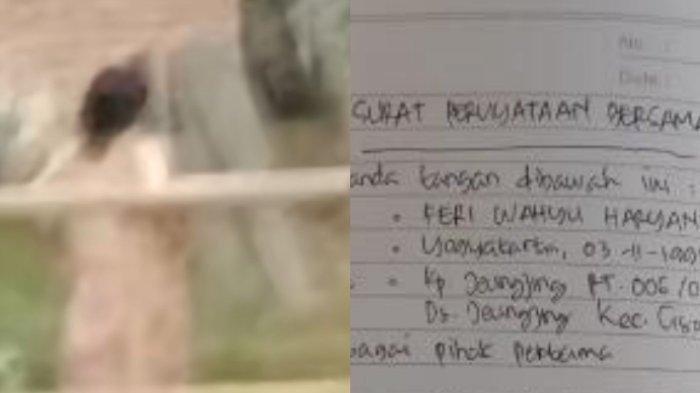 No :
Date :
SURAT PERNYATAAN BERSAMA
anda tangan dibawah ini :
• FERI WAHYU HARYAN
• Yogyakarta, 03-11-199
• Kp Jeungjing RT. 006/0
Ds. Jeungjing Kec. Ciso
bagai pihak pertama